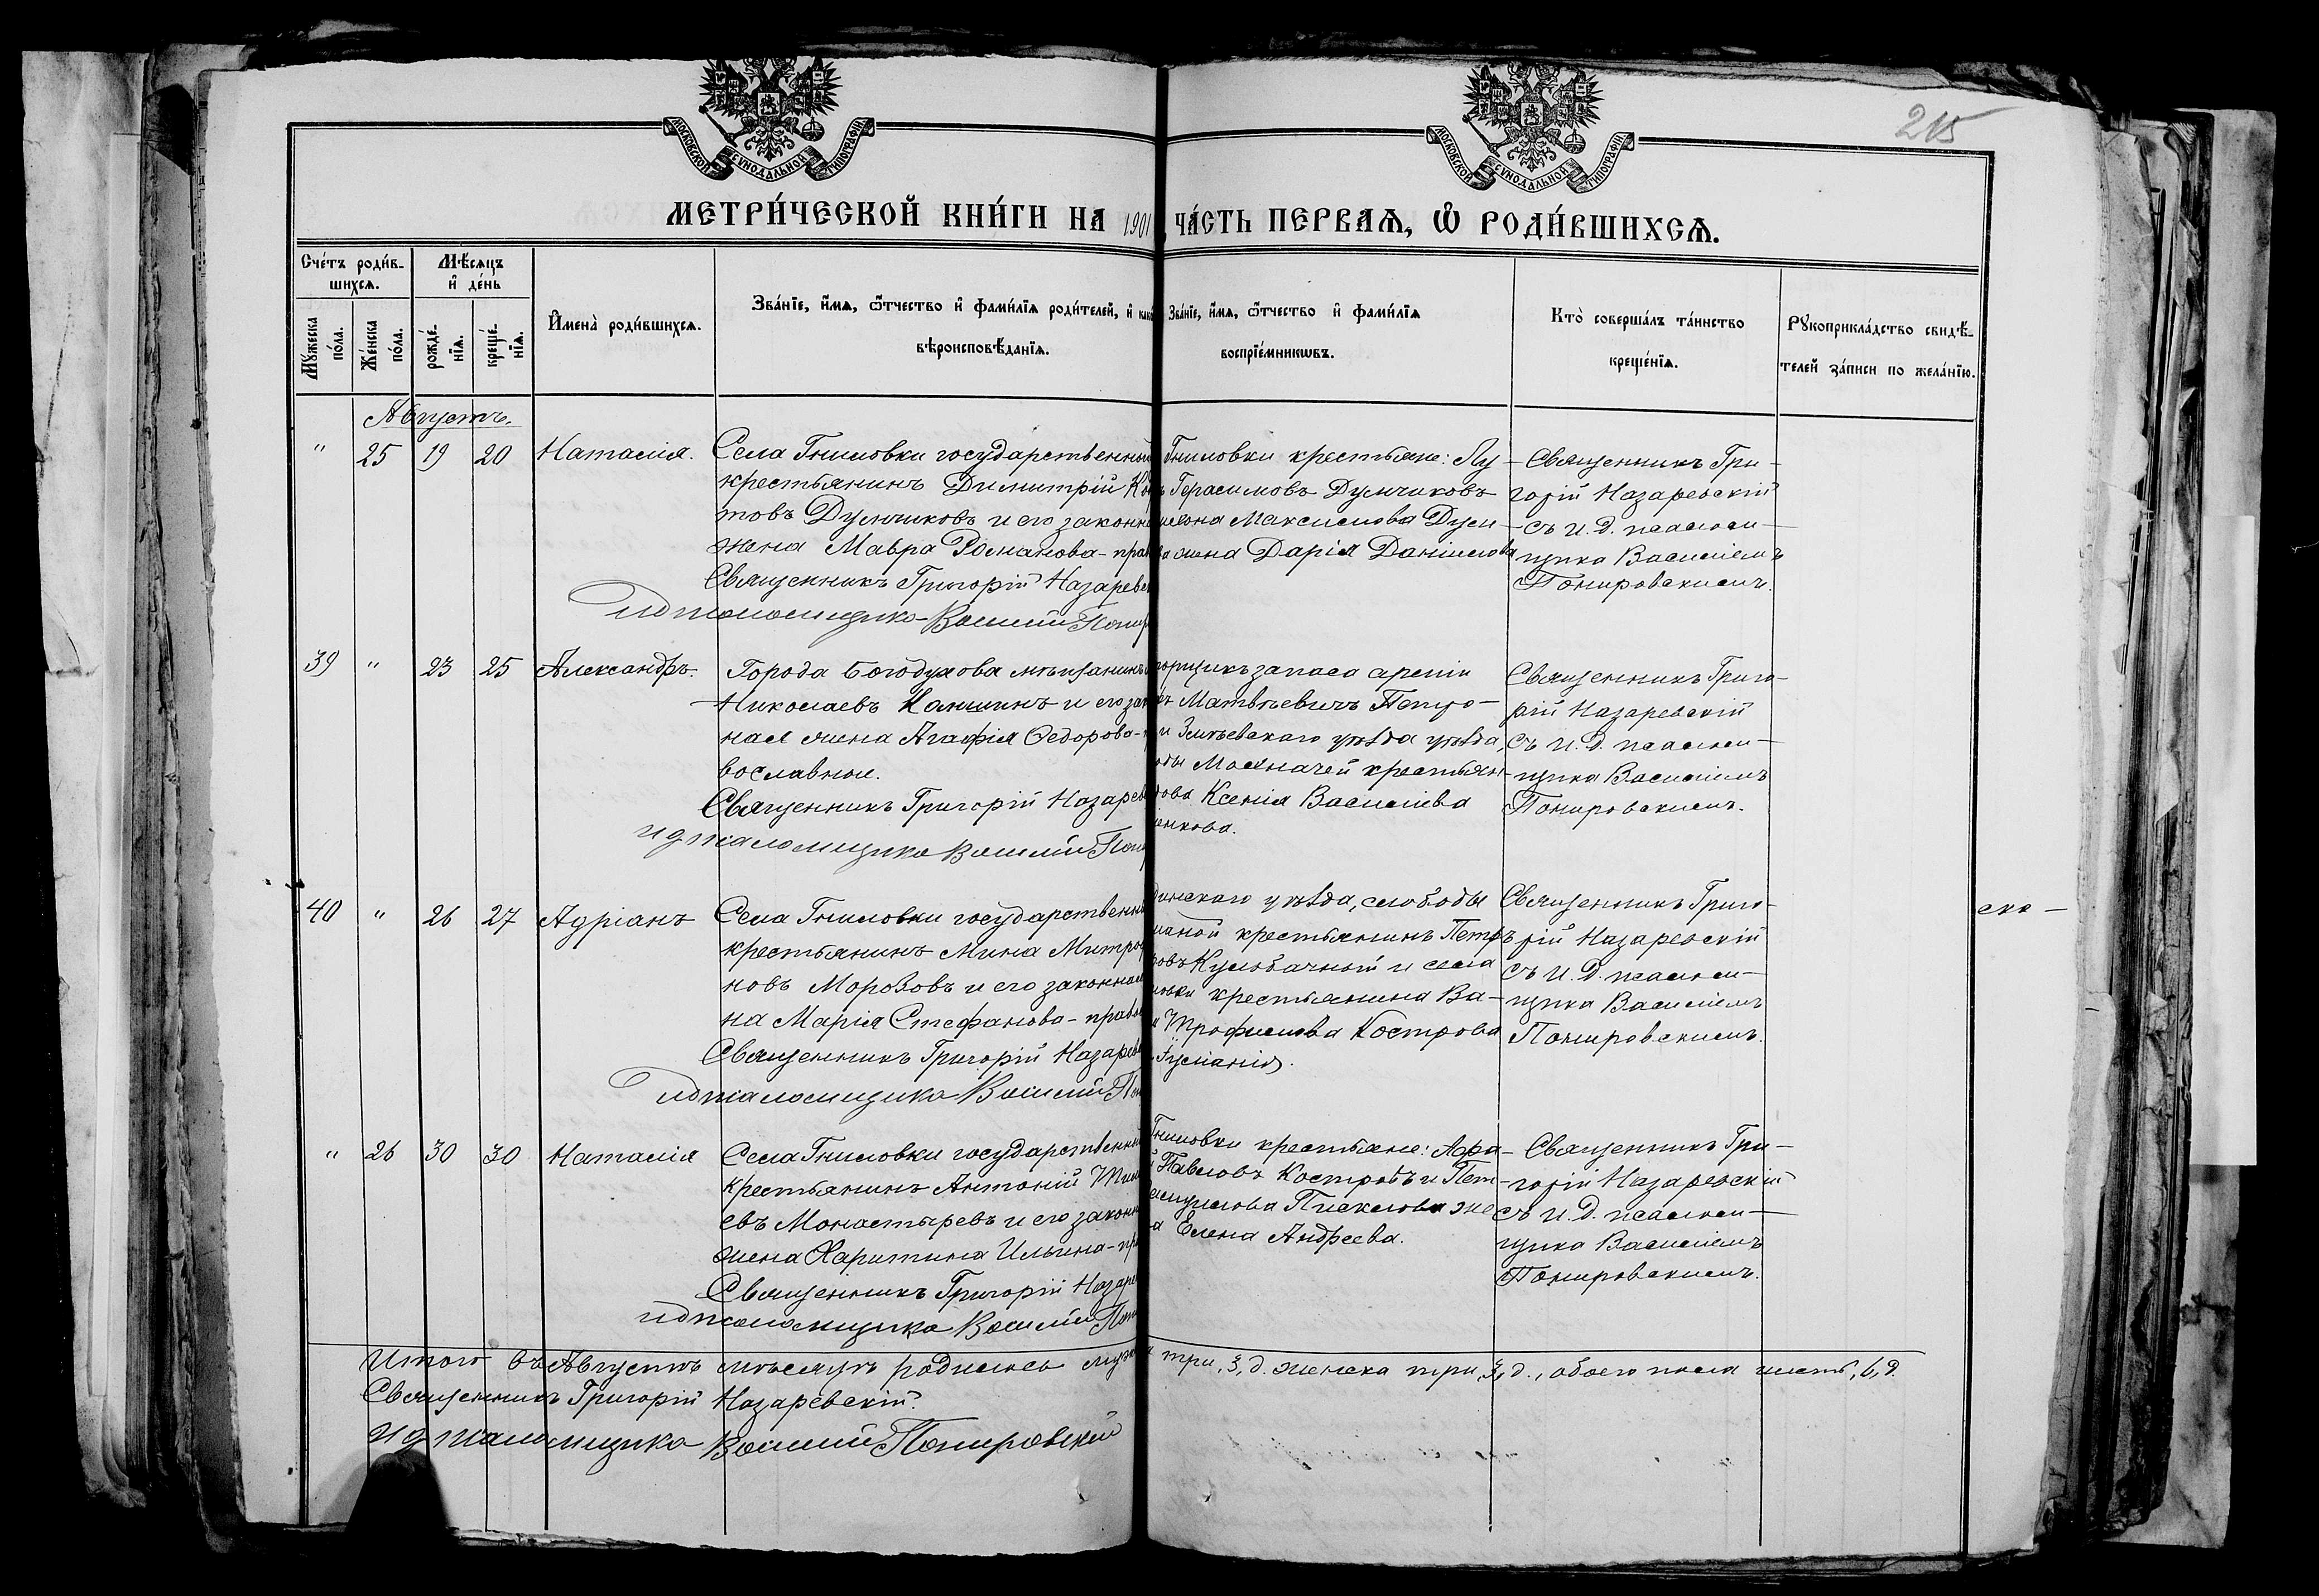 МОСКОВСКОЙ СУНОДАЛЬНОЙ ТИПОГРАФІИ
МОСКОВСКОЙ СУНОДАЛЬНОЙ ТИПОГРАФІИ
215
МЕТРИ́ЧЕСКОЙ КНИ́ГИ НА 1901
ЧА́СТЬ ПЕРВАѦ, Ѡ РОДИ́ВШИХСѦ.
Сче́тъ роди́в-
шихсѧ.
Мѣ́сѧцъ
и҆ де́нь
Мꙋ́жеска по́ла.
Же́нска по́ла.
рожде́нїѧ.
креще́нїѧ.
И҆мена̀ роди́вшихсѧ.
Зва́нїе, и҆́мѧ, ѻ҆́тчество и҆ фами́лїѧ роди́телей, и҆
вѣроисповѣ́данїѧ.
Зва́нїе, и҆́мѧ, ѻ҆́тчество и҆ фами́лїѧ
воспрїе́мникωвъ.
Кто̀ соверша́лъ та́инство
креще́нїѧ.
Рꙋкоприкла́дство свидѣ́-
телей за́писи по жела́нїю.
Августъ.
" 25 19 20 Наталія.
Села Гниловки государственный
крестьянинъ Димитрій
товъ Думчиковъ и его законная
жена Мавра Романова - прав
Священникъ Григорій Назаревск
ид псаломщика Василий Пони
Гниловки крестьяне: Лу-
Герасимовъ Думчиковъ
Максимова Дум-
жена Дарія Даніилова
Священникъ Гри-
горій Назаревскій
съ и. д. псалом-
щика Василіемъ
Понировскимъ.
39 " 23 25 Александръ.
Города Богодухова мѣщанинъ
Николаевъ Каншинъ и его зак
ная жена Агафія Федорова -
вославные.
Священникъ Григорій Назарев
ид псаломщика Василий Пони
запаса арміи
Матвѣевичъ Петро-
и Зміевскаго уѣзда уѣзда,
Мохначей крестьян-
Ксенія Василіева
енкова.
Священникъ Григо-
рій Назаревскій
съ и. д. псалом-
щика Василіемъ
Понировскимъ.
40 " 26 27 Адріанъ
Села Гниловки государственный
крестьянинъ Мина Митроф
новъ Морозовъ и его законная
на Марія Стефанова - правос
Священникъ Григорій Назарев
ид псаломщика Василий Пон
динскаго уѣзда, слободы
крестьянинъ Петръ
и села
крестьянина Ва-
Трофимова Кострова
Священникъ Григо-
рій Назаревскій
съ и. д. псалом-
щика Василіемъ
Понировскимъ.
ска-
" 26 30 30 Наталія
Села Гниловки государственный
крестьянинъ Антоній Тим
евъ Монастыревъ и его законн
жена Харитина Ильина - пр
Священникъ Григорій Назаре
ид псаломщика Василий Пон
Гниловки крестьяне: Афа-
Павловъ Костровъ и Пет-
же
Елена Андреева.
Священникъ Гри-
горій Назаревскій
съ и. д. псалом-
щика Василіемъ
Понировскимъ.
Итого въ Августѣ мѣсяцѣ родилось муж три, 3, д. женска три, 3, д., обоего пола шесть, 6, д.
Священникъ Григорій Назаревскій.
ид псаломщика Василий Понировский